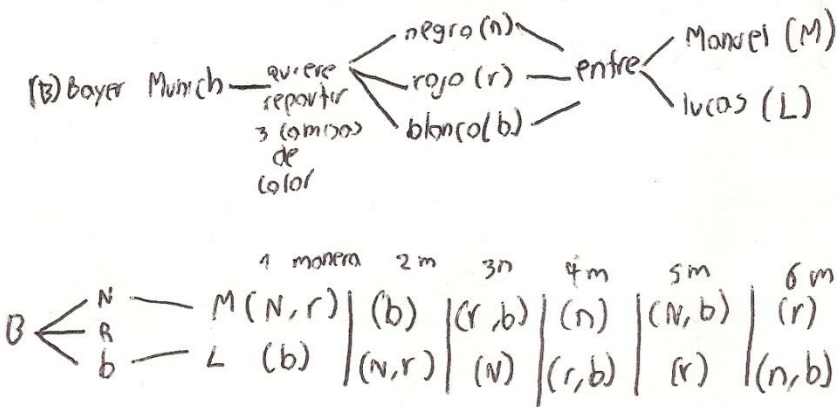 (B) Bayer Munich
quiere
repartir
3 camisas
de
color
negro (n)
rojo (r)
blanco (b)
entre
Manuel (M)
lucas (L)
1 manera 2m 3n 4m 5m 6m
B N M (N, r) | (b) | (r, b) | (n) | (N, b) | (r)
R
b L (b) | (N, r) | (N) | (r, b) | (r) | (n, b)